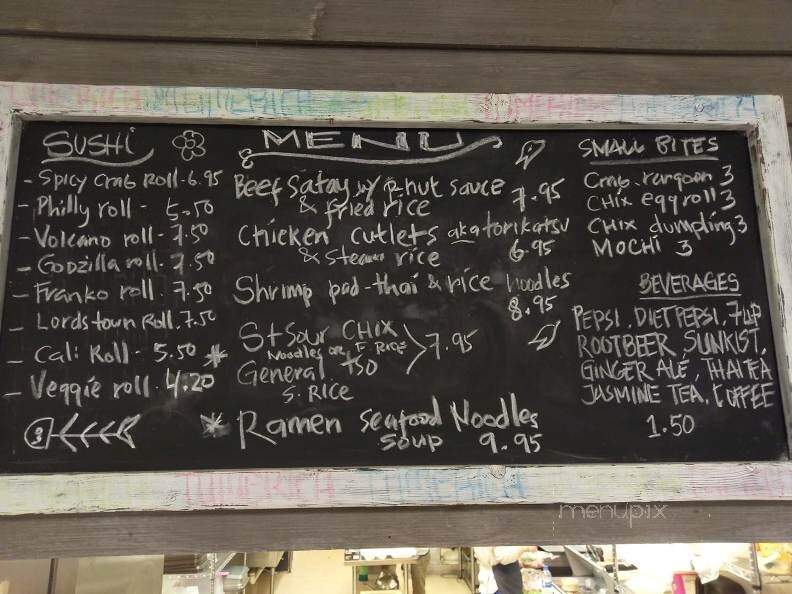 SUSHI
- SPICY Crab ROLL - 6.95
- Philly roll - 5.50
- Volcano roll - 7.50
- Godzilla roll. 7.50
- Franko roll. 7.50
- Lordstown Roll. 7.50
- Cali Roll - 5.50
- Veggie roll. 4.20
MENU
Beef Satay w/ p-nut sauce
& fried rice 7.95
Chicken Cutlets akatorikatsu
& Steam rice 6.95
Shrimp pad-thai & rice noodles
8.95
S+Sour CHIX
Noodles or F. RICE
General TSO 7.95
S. RICE
* Ramen Seafood Noodles
SOUP 9.95
SMALL BITES
Crab. rangoon 3
CHIX eggroll 3
CHIX dumpling 3
MOCHI 3
BEVERAGES
PEPSI, DIET PEPSI, 7UP
ROOTBEER, SUNKIST,
GINGER ALE, THAI TEA
JASMINE TEA, COFFEE
1.50
menupix